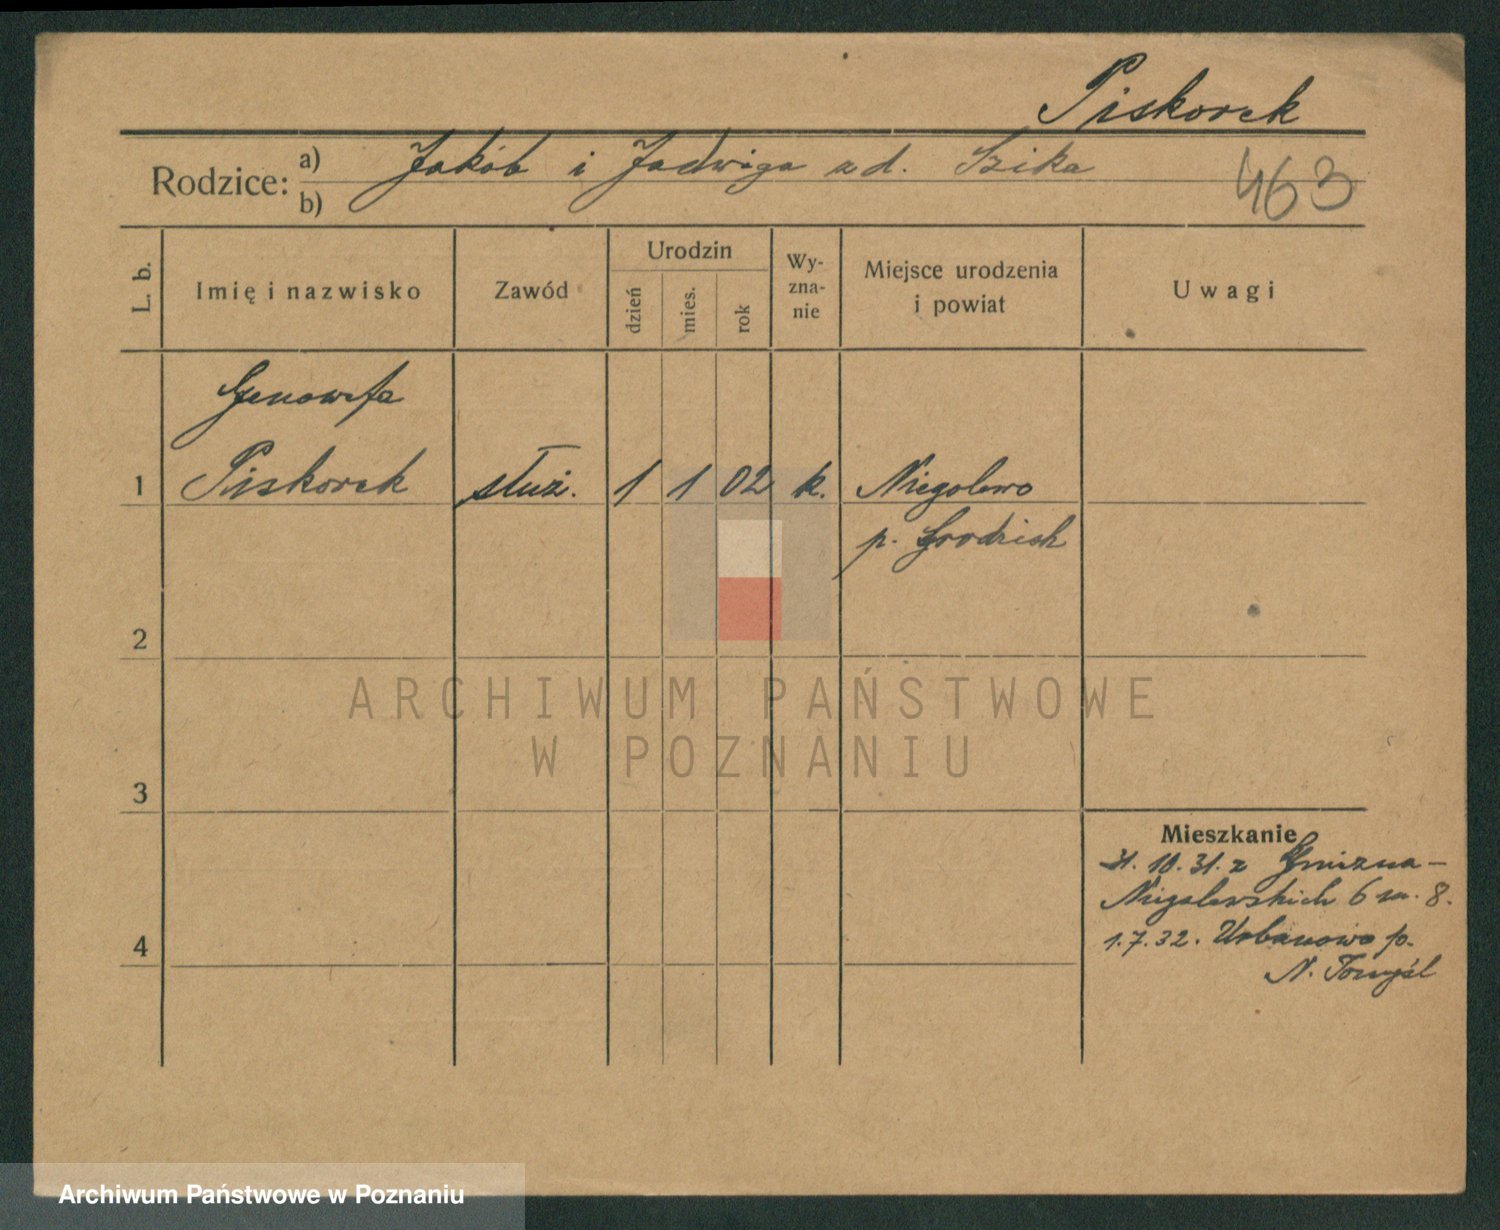 Piskorek
Rodzice: a) Jakób i Jadwiga zd. Szika
b)
463
L. b.
Imię i nazwisko
Zawód
Urodzin
dzień
mies.
rok
Wy-
zna-
nie
Miejsce urodzenia
i powiat
Uwagi
Genowefa
1 Piskorek służ. 1 1 02 k. Niegolewo
p. Grodzisk
2
3
4
Mieszkanie
31.10.31. z Gniezna –
Niegolewskich 6 m. 8.
1.7.32. Urbanowo p.
N. Tomyśl
ARCHIWUM PAŃSTWOWE
W POZNANIU
Archiwum Państwowe w Poznaniu